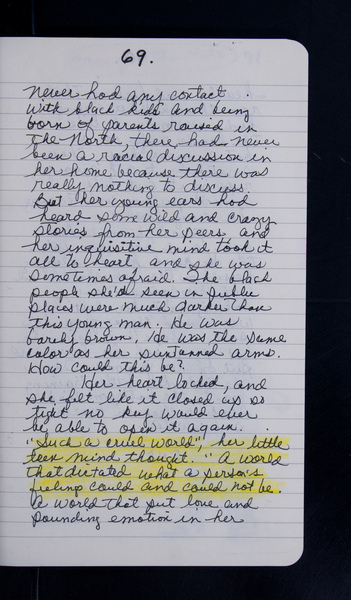 69.
never had any contact
with black kids and being
born of parents raised in
the North, there had never
been a racial discussion in
her home because there was
really nothing to discuss.
But her young ears had
heard some wild and crazy
stories from her peers and
her inquisitive mind took it
all to heart, and she was
sometimes afraid. The black
people she'd seen in public
places were much darker than
this young man. He was
barely brown. He was the same
color as her suntanned arms.
How could this be?
Her heart locked, and
she felt like it closed up so
tight no key would ever
be able to open it again.
"Such a cruel world", her little
teen mind thought. "A world
that dictated what a person's
feelings could and could not be.
A world that put love and
pounding emotion in her